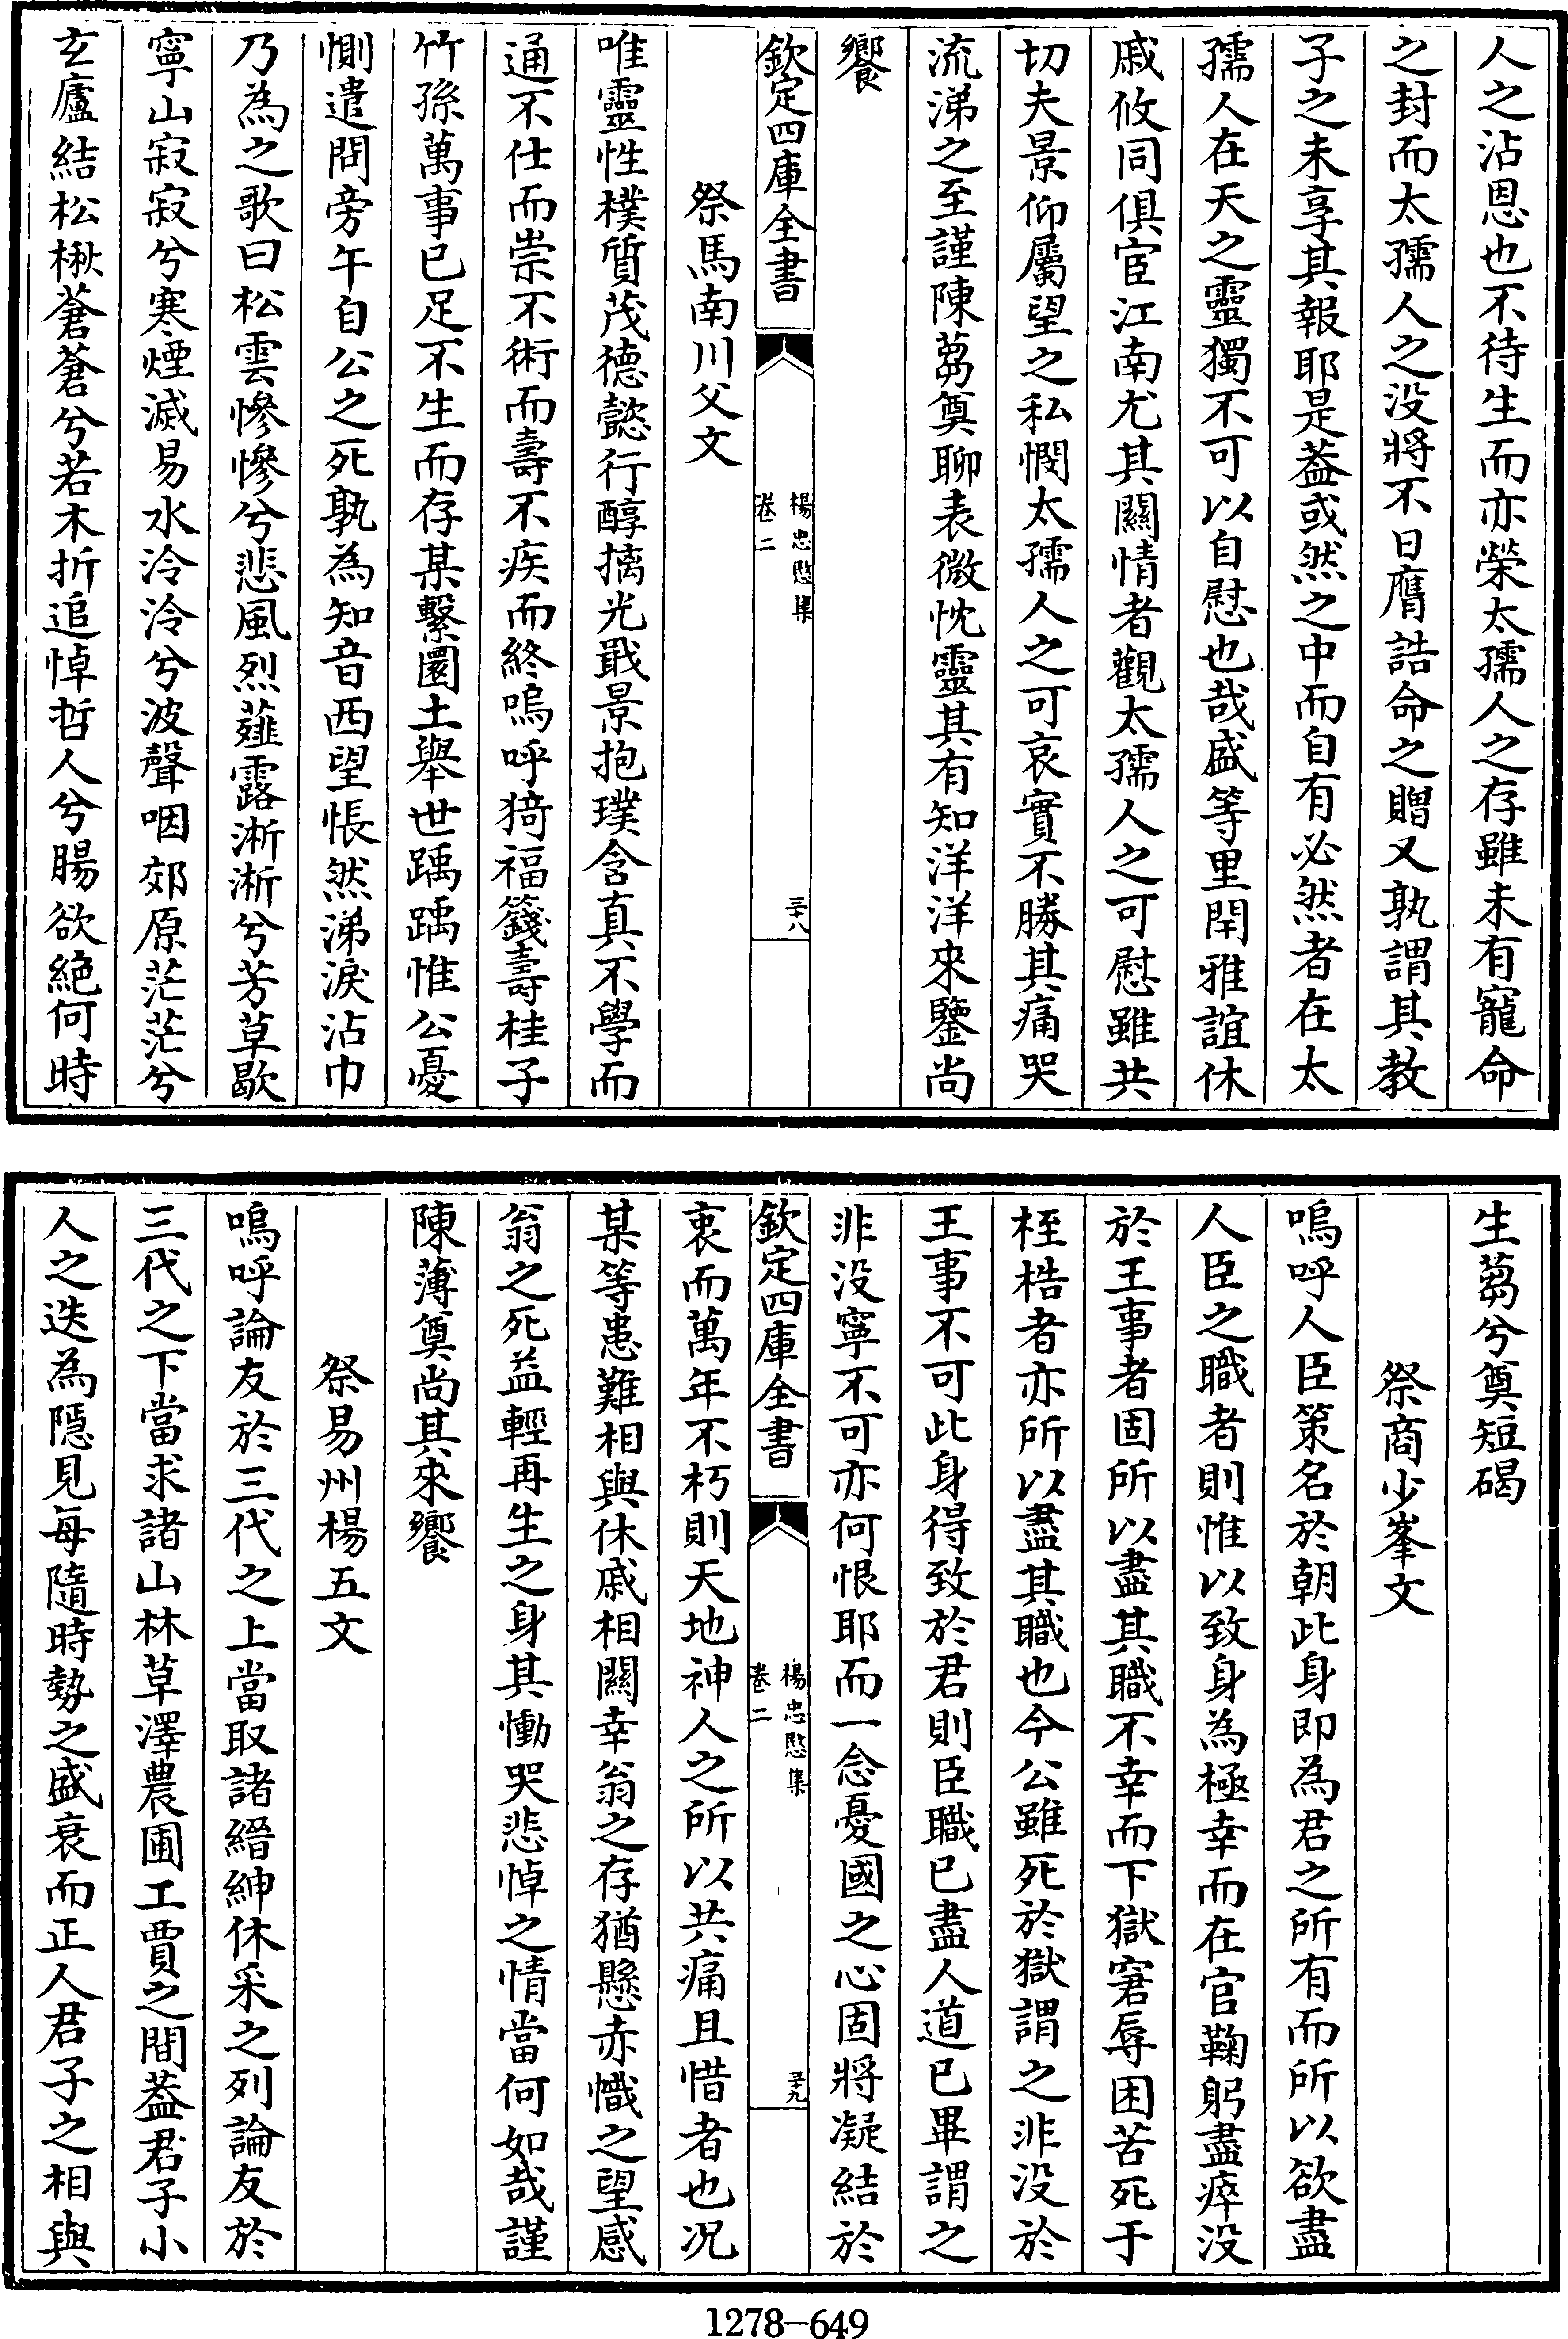 人之沾恩也不待生而亦榮太孺人之存雖未有寵命
之封而太孺人之没將不日膺誥命之贈又孰謂其教
子之未享其報耶是葢或然之中而自有必然者在太
孺人在天之靈獨不可以自慰也哉盛等里閈雅誼休
戚攸同俱宦江南尤其關情者觀太孺人之可慰雖共
切夫景仰屬望之私憫太孺人之可哀實不勝其痛哭
流涕之至謹陳芻奠聊表微忱靈其有知洋洋來鑒尚
饗
欽定四庫全書
楊忠愍集
卷二
三十八
祭馬南川父文
唯靈性樸質茂德懿行醇摛光戢景抱璞含真不學而
通不仕而崇不術而壽不疾而終嗚呼猗福籛壽桂子
竹孫萬事已足不生而存某繫圜土舉世踽踽惟公憂
惻遣問旁午自公之死孰為知音西望悵然涕淚沾巾
乃為之歌曰松雲慘慘兮悲風烈薤露淅淅兮芳草歇
寧山寂寂兮寒煙滅易水泠泠兮波聲咽郊原茫茫兮
玄廬結松楸蒼蒼兮若木折追悼哲人兮腸欲絶何時
生芻兮奠短碣
祭商少峯文
嗚呼人臣策名於朝此身即為君之所有而所以欲盡
人臣之職者則惟以致身為極幸而在官鞠躬盡瘁没
於王事者固所以盡其職不幸而下獄窘辱困苦死于
桎梏者亦所以盡其職也今公雖死於獄謂之非没於
王事不可此身得致於君則臣職已盡人道已畢謂之
非没寧不可亦何恨耶而一念憂國之心固將凝結於
欽定四庫全書
楊忠愍集
卷二
三十九
衷而萬年不朽則天地神人之所以共痛且惜者也况
某等患難相與休戚相關幸翁之存猶懸赤幟之望感
翁之死益輕再生之身其慟哭悲悼之情當何如哉謹
陳薄奠尚其來饗
祭易州楊五文
嗚呼論友於三代之上當取諸縉紳休采之列論友於
三代之下當求諸山林草澤農圃工賈之間葢君子小
人之迭為隱見每隨時勢之盛衰而正人君子之相與
1278-649